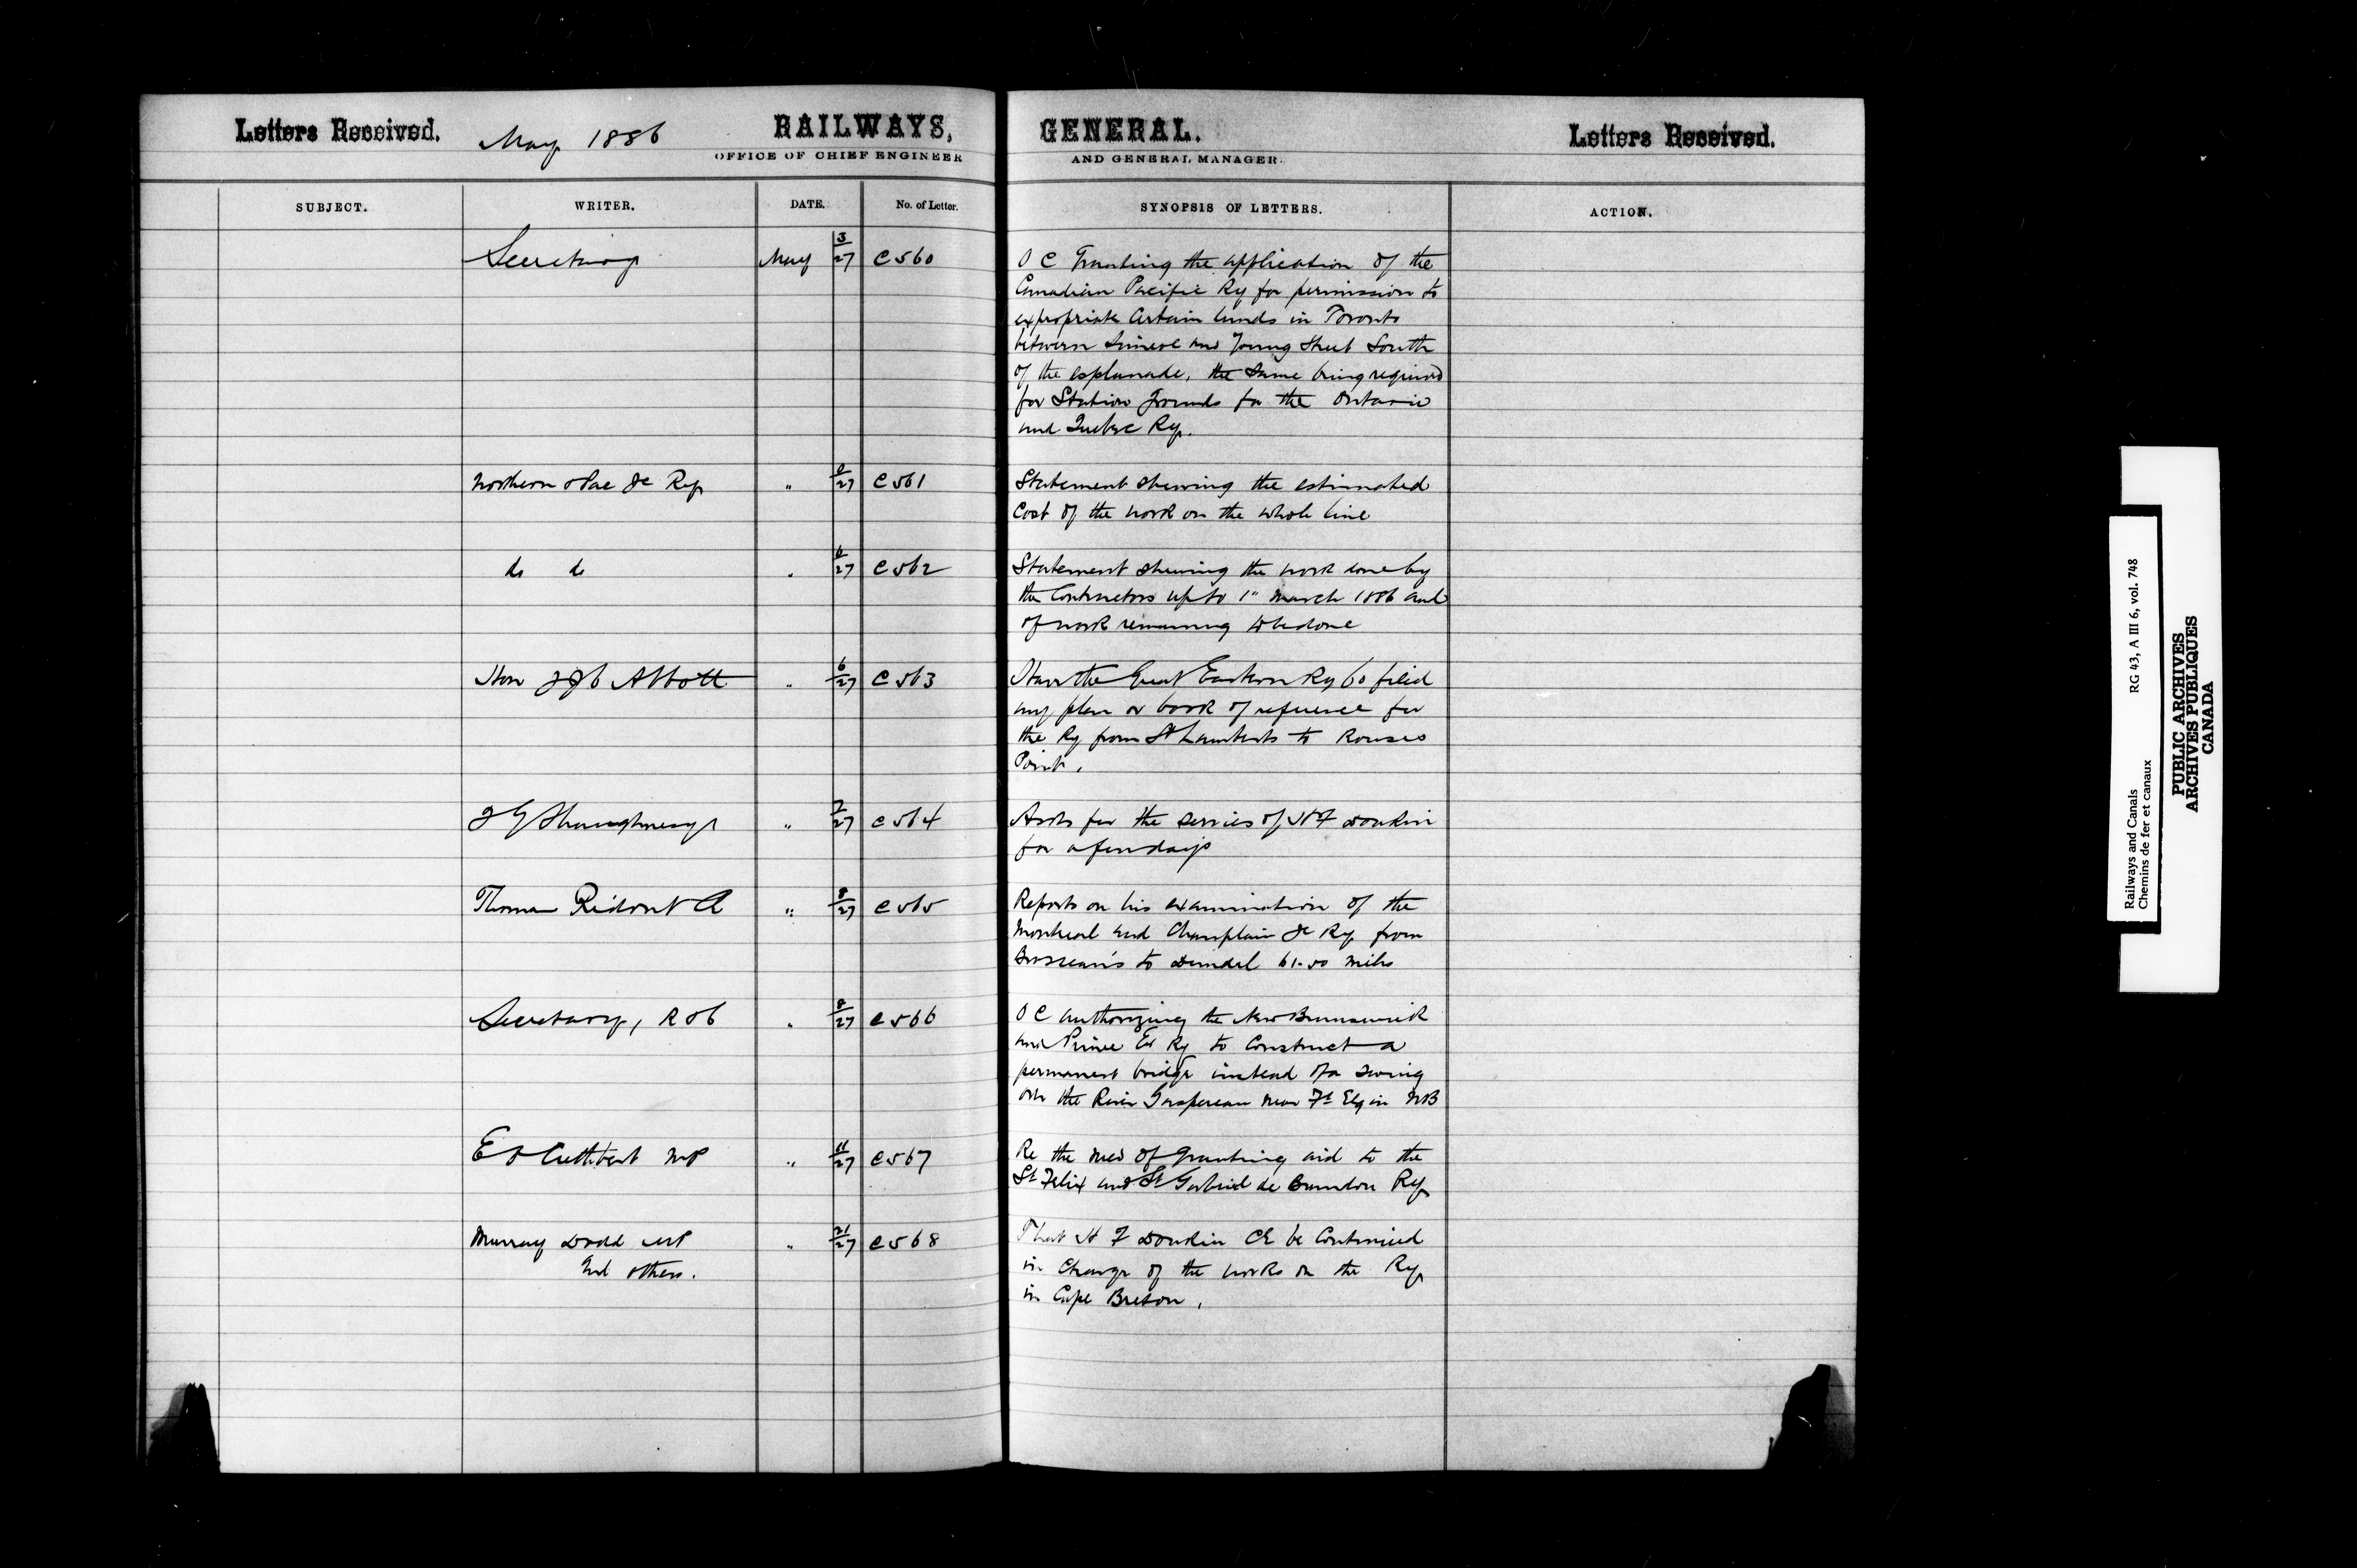 Letters Received. May 1886 RAILWAYS, GENERAL. Letters Received.
OFFICE OF CHIEF ENGINEER AND GENERAL MANAGER.
SUBJECT. WRITER. DATE. No. of Letter. SYNOPSIS OF LETTERS. ACTION.
Secretary May 3/27 C560 O C Granting the application of the
Canadian Pacific Ry for permission to
expropriate Certain lands in Toronto
between Simcoe and Young Street South
of the esplanade, the same being required
for Station Grounds for the Ontario
and Quebec Ry.
Northern & Pac Jc Ry " /27 C561 Statement shewing the estimated
Cost of the work on the whole line
do do " 6/27 C562 Statement shewing the work done by
the Contractors up to 1" March 1886 and
of work remaining to be done
Hon J J C Abbott " 6/27 C563 Have the Great Eastern Ry Co filed
any plan or book of reference for
the Ry from St Lamberts to Rouses
Point.
Shaughnessy " 7/27 C564 Asks for the services of H F Donkin
for a few days
Thomas Ridout C " 8/27 C565 Reports on his examination of the
Montreal and Champlain Jc Ry from
Brosseau's to Dundee 61.50 miles
Secretary, R & C " 8/27 C566 O C authorizing the New Brunswick
and Prince Ed Ry to Construct a
permanent bridge instead of a swing
over the River Gaspereau near Ft Elgin NB
E O Cuthbert MP " 11/27 C567 Re the need of granting aid to the
St Felix and St Gabriel de Brandon Ry
Murray Dodd MP " 21/27 C568 That H F Donkin CE be Continued
and others. in Charge of the works on the Ry
in Cape Breton.
Railways and Canals RG 43, A III 6, vol. 748
Chemins de fer et canaux
PUBLIC ARCHIVES
ARCHIVES PUBLIQUES
CANADA